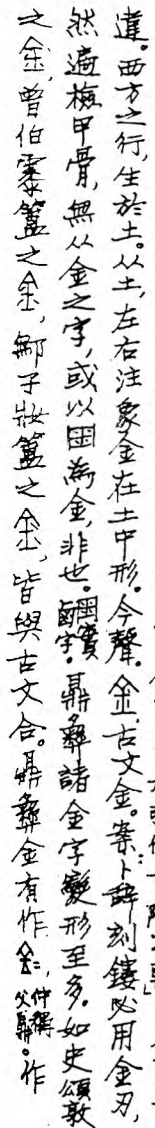 違。西方之行，生於土。从土，左右注，象金在土中形。今聲。金，古文金。案：卜辭刻鏤必用金刃，
然遍檢甲骨，無从金之字，或以𡇡為金，非也。實鹵字。鼎彝諸金字變形至多。如史頌敦
之金，曾伯霥簠之金，鄦子妝簠之金，皆與古文合。鼎彝金有作金，仲偁父鼎。作